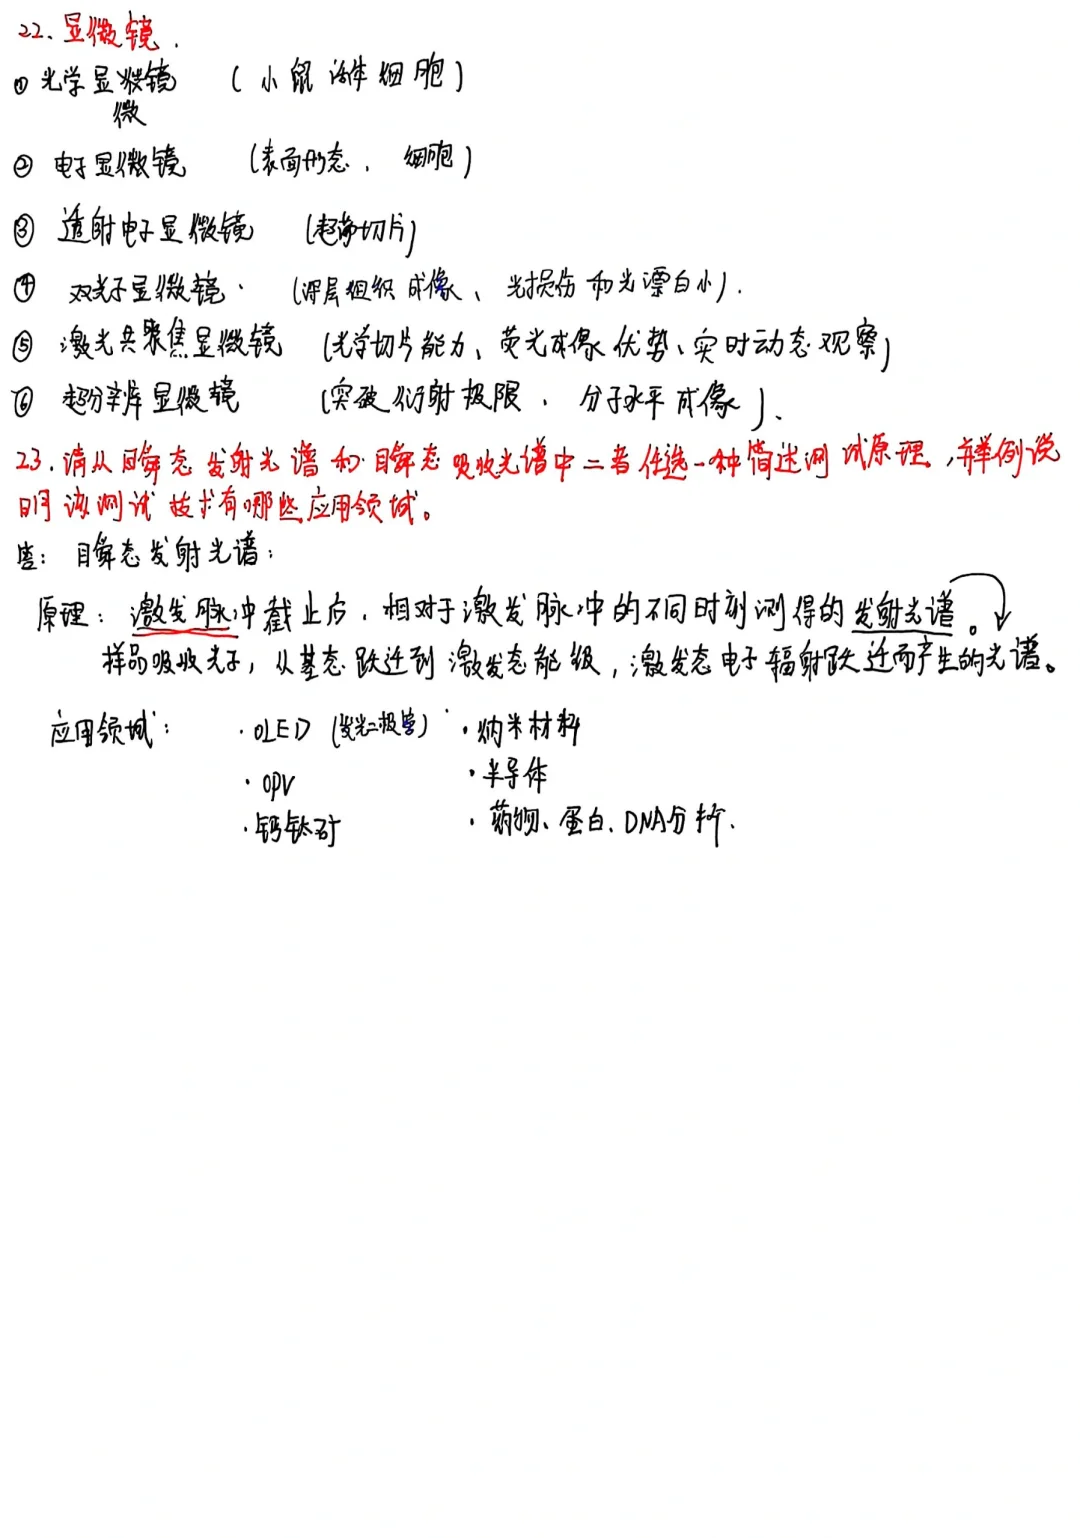 22、显微镜.
① 光学显微镜 (小鼠活体细胞)
微
② 电子显微镜 (表面形态、细胞)
③ 透射电子显微镜 (超薄切片)
④ 双光子显微镜. (深层组织成像、光损伤和光漂白小).
⑤ 激光共聚焦显微镜 (光学切片能力、荧光成像优势、实时动态观察)
⑥ 超分辨显微镜 (突破衍射极限、分子水平成像)、
23.请从瞬态发射光谱和瞬态吸收光谱中二者任选一种简述测试原理,并举例说
明该测试技术有哪些应用领域。
答: 瞬态发射光谱:
原理: 激发脉冲截止后,相对于激发脉冲的不同时刻测得的发射光谱。
样品吸收光子,从基态跃迁到激发态能级,激发态电子辐射跃迁而产生的光谱。
应用领域: ·OLED (发光二极管) ·纳米材料
·OPV ·半导体
·钙钛矿 ·药物、蛋白、DNA分析.